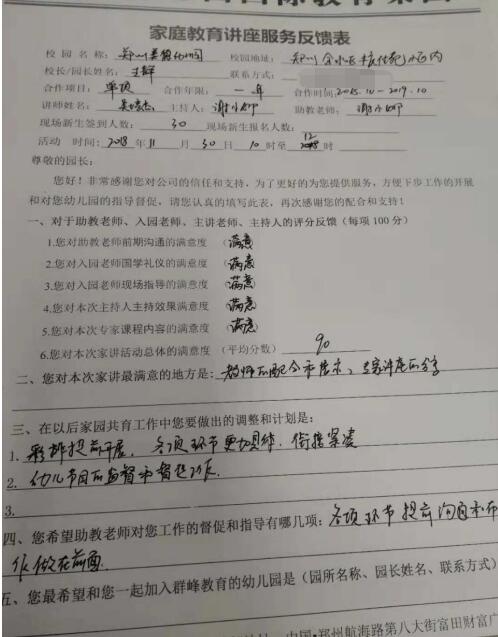 家庭教育讲座服务反馈表
校园名称: 郑州 幼儿园 校园地址: 郑州 小区 内
校长/园长姓名: 王辉 联系方式:
合作项目: 单项 合作年限: 一年 合作时间: 2018.10-2019.10
讲师姓名: 主持人: 谢小卿 助教老师: 谢小卿
现场新生签到人数: 30 现场新生报名人数:
活动 时间: 2018 年 11 月 30 日 10 时至 12 时
尊敬的园长:
您好! 非常感谢您对公司的信任和支持, 为了更好的为您提供服务, 方便下步工作的开展
和对您幼儿园的指导督促, 请您认真的填写此表, 再次感谢您的配合和支持!
一、对于助教老师、入园老师、主讲老师、主持人的评分反馈 (每项 100 分)
1.您对助教老师前期沟通的满意度 (满意
2.您对入园老师国学礼仪的满意度 (满意
3.您对入园老师现场指导的满意度 (满意
4.您对本次主持人主持效果满意度 (满意
5.您对本次专家课程内容的满意度 (满意
6.您对本次家讲活动总体的满意度 (平均分数) 90
二、您对本次家讲最满意的地方是: 教师的配合和展示、专家讲座的分享
三、在以后家园共育工作中您要做出的调整和计划是:
1. 彩排提前开展、各项环节更切具体, 衔接紧凑
2. 幼儿节目的监督和督促工作.
3.
四、您希望助教老师对您工作的督促和指导有哪几项: 各项环节提前沟通和布
作做在前面.
五、您最希望和您一起加入群峰教育的幼儿园是 (园所名称、园长姓名、联系方式)
中国·郑州航海路第八大街富田财富广